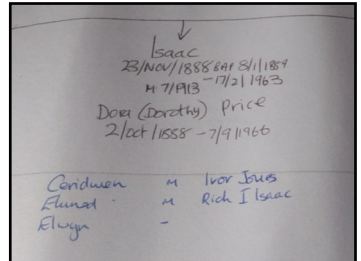 Isaac
23/NOV/1888 BAP 8/1/1889
M 7/1913 - 17/2/1963
Dora (Dorothy) Price
2/Oct/1888 - 7/9/1966
Ceridwen M Ivor Jones
Eluned M Rich I Isaac
Elwyn -